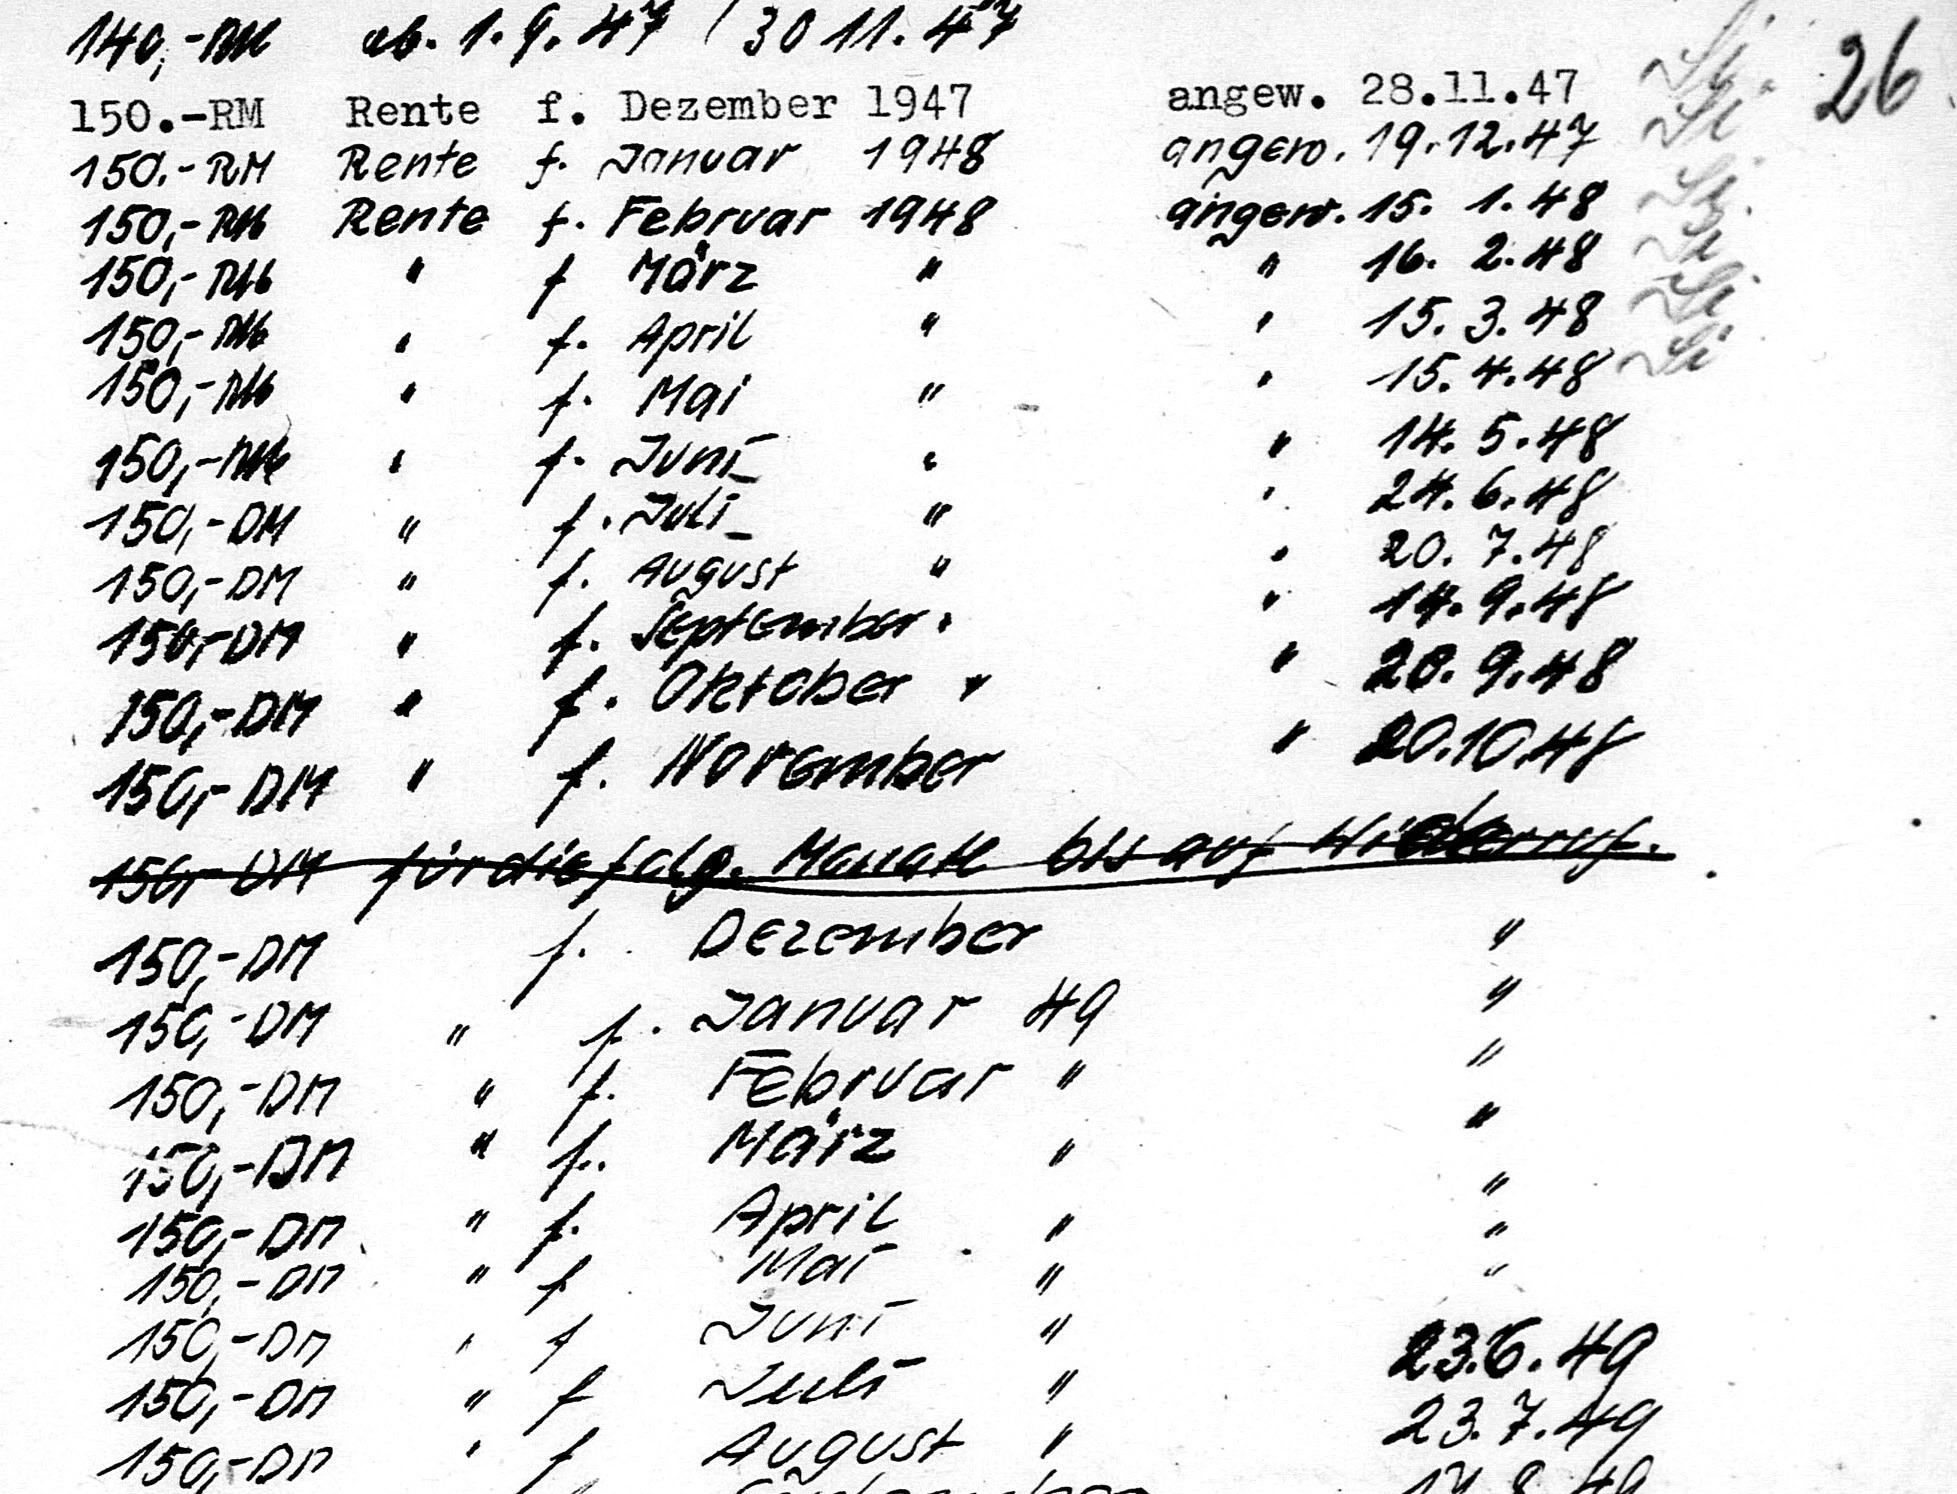 140,-RM ab. 1.9.47 / 30 11. 47
26
150.-RM Rente f. Dezember 1947 angew. 28.11.47 Si.
150.-RM Rente f. Januar 1948 angew. 19.12.47 Si
150,-RM Rente f. Februar 1948 angew. 15. 1.48 Si.
150,-RM " f März " " 16. 2.48 Si
150,-RM " f. April " " 15. 3.48 Si
150,-RM " f. Mai " " 15. 4.48 Si
150,-RM " f. Juni " " 14. 5.48
150,-DM " f. Juli " " 24. 6.48
150,-DM " f. August " " 20. 7.48
150,-DM " f. September " " 14. 9.48
150,-DM " f. Oktober " " 20. 9.48
150,-DM " f. November " 20.10.48
150,-DM für die folg. Monate bis auf Widerruf.
150,-DM f. Dezember "
150,-DM " f. Januar 49 "
150,-DM " f. Februar " "
150,-DM " f. März " "
150,-DM " f. April " "
150,-DM " f Mai " "
150,-DM " f Juni " "
150,-DM " f Juli " 23.6.49
150,-DM " f August " 23.7.49